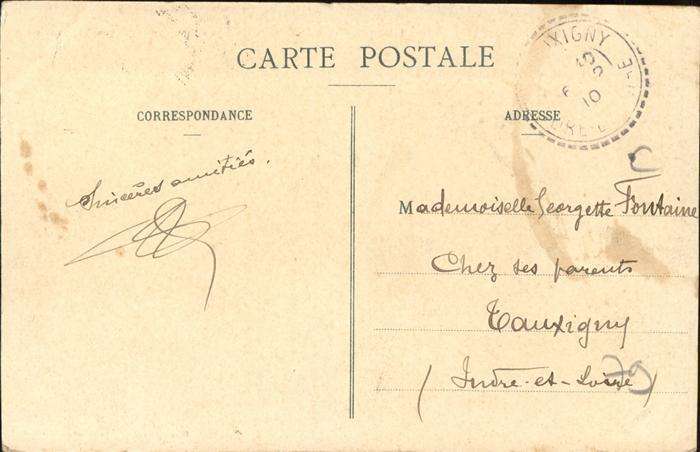 CARTE POSTALE
CORRESPONDANCE
ADRESSE
Sincères amitiés.
Mademoiselle Georgette Fontaine
Chez ses parents
Tauxigny
(Indre-et-Loire)
UXIGNY
10